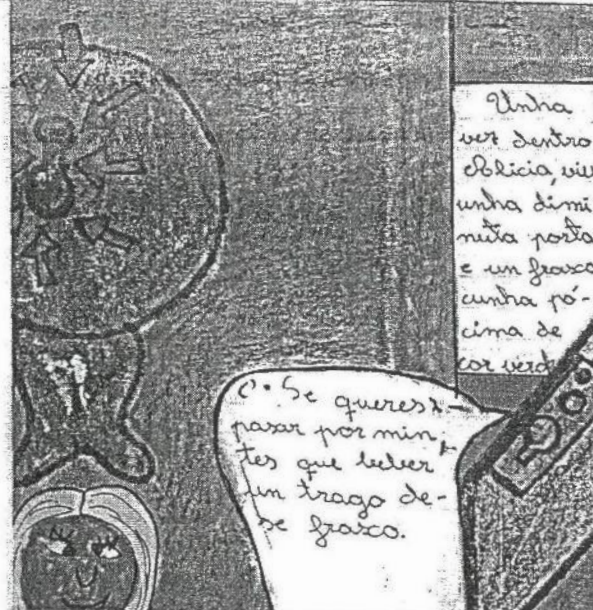 Unha
vez dentro
Alicia, viu
unha dimi
nuta porta
e un frasco
cunha pó-
cima de
cor verd
- Se queres
pasar por min,
tes que beber
un trago de-
se frasco.